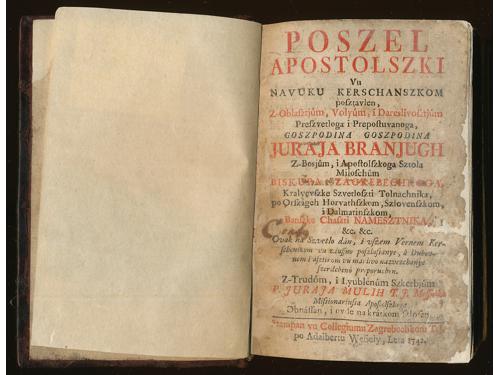 POSZEL
APOSTOLSZKI
Vu
NAVUKU KERSCHANSZKOM
posztavlen,
Z-Oblasztjum, Volyum, i Dareslivosztjum
Preszvetloga i Prepostuvanoga,
GOSZPODINA GOSZPODINA
JURAJA BRANJUGH
Z-Bosjum, i Apostolszkoga Sztola
Miloschum
BISKUPA ZAGREBECHKOGA,
Kralyevszke Szvetloszti Tolnachnika,
po Orszageh Horvathszkem, Szlovenszkom,
i Dalmatinszkom,
Banszke Chaszti NAMESZTNIKA,
&c. &c.
Ovak na Szvetlo dan, i vszem Vernem
Z-Trudom, i Lyublenum Szkerbjum
P. JURAJA MULIH T. J.
Missionariusa Apostolszkoga
Obnassan, i ovde na kratkom
Stampan vu Collegiumu Zagrebechkom
po Adalbertu Wesely, Leta 1742.